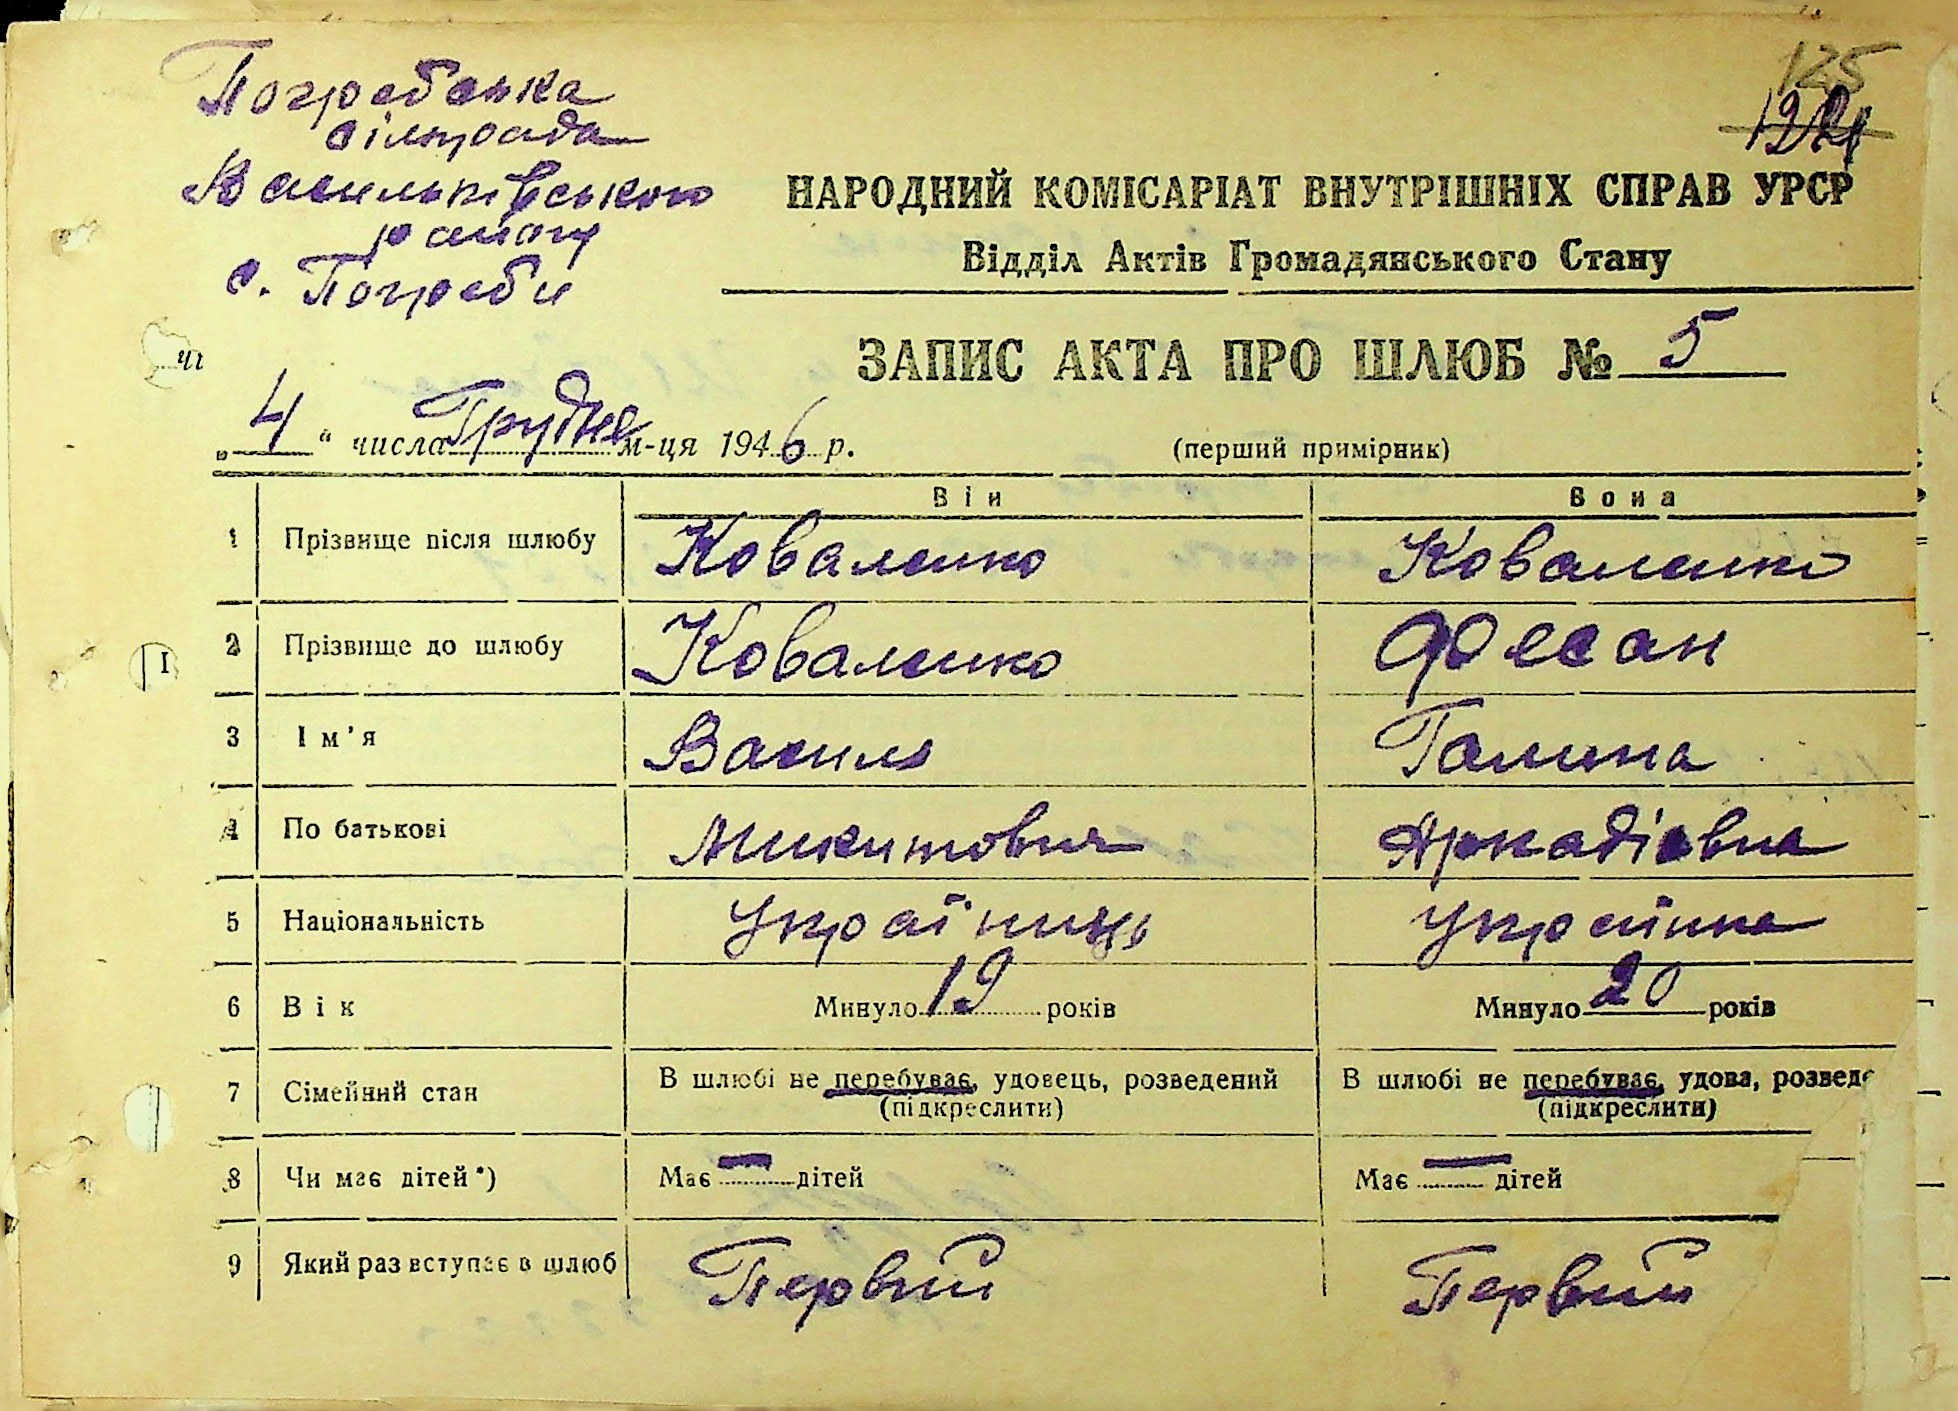 Погребська
сільрада
Васильківського
району
с. Погреби
125
НАРОДНИЙ КОМІСАРІАТ ВНУТРІШНІХ СПРАВ УРСР
Відділ Актів Громадянського Стану
ЗАПИС АКТА ПРО ШЛЮБ № 5
„4“ числа Грудня м-ця 1946 р. (перший примірник)
Він Вона
1 Прізвище після шлюбу Коваленко Коваленко
2 Прізвище до шлюбу Коваленко Фесан
3 Ім'я Василь Галина
4 По батькові Микитович Аркадієвна
5 Національність Українець Українка
6 Вік Минуло 19 років Минуло 20 років
7 Сімейний стан В шлюбі не перебуває, удовець, розведений В шлюбі не перебуває, удова, розведе
(підкреслити) (підкреслити)
8 Чи має дітей*) Має — дітей Має — дітей
9 Який раз вступає в шлюб Первий Первий